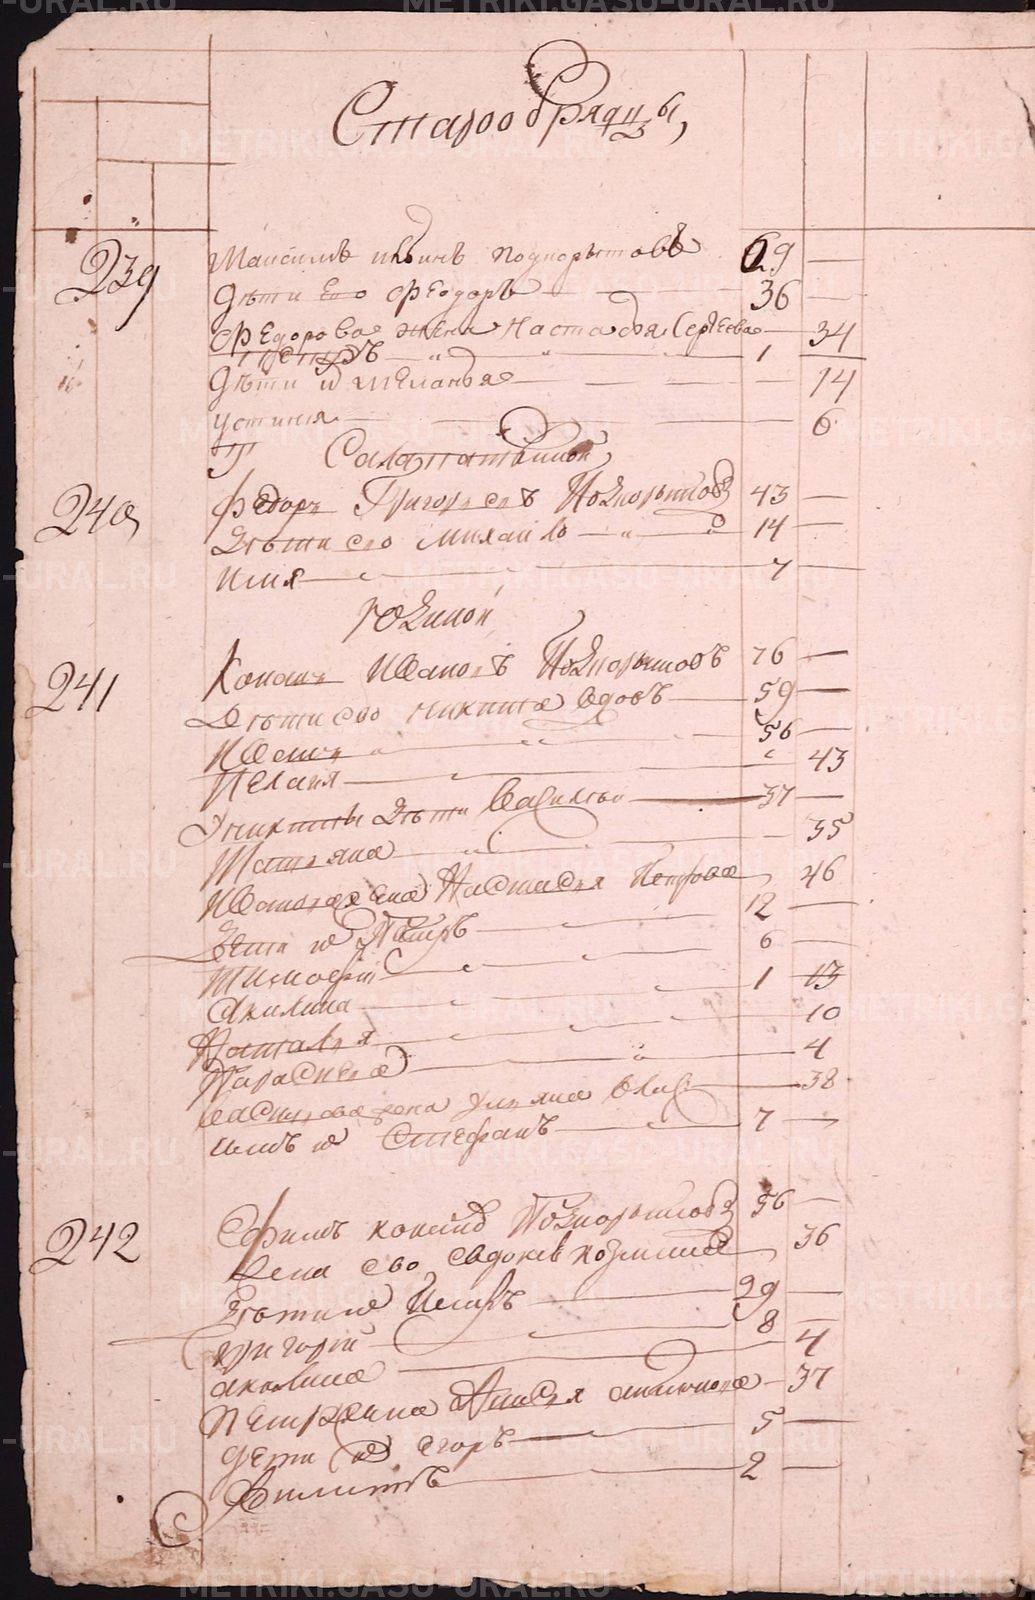 Старообрядцы,
239 Максимъ Ильинъ Подкорытовъ 69 —
Дѣти Его Феодоръ 36 —
Федорова жена Настасья Сергеева — 34
Петръ 1
Дѣти и Меланья 14
Устинья 6
240 Федоръ Григорьевъ Подкорытовъ 43 —
Дѣти его Михайло 14 —
Илья 7 —
Юдиной
241 Иванов Подкорытовъ 76 —
Дѣти его Никита вдовъ 59 —
Иванъ 56 —
Пелагія 43
Никиты дѣти Василей 37 —
Татьяна 35
Иванова жена Настасья Петрова 46
Дети и Петръ 12 —
Тимофей 6 —
Акилина 1 13
Наталья 10
Парасковья 4
Васильева жена Ульяна 38
сынъ и Стефанъ 7 —
242 Ефимъ Подкорытовъ 56 —
Жена его Евдокея 36
Дѣти и Петръ 29 —
Григорей 8 —
Акилина 4
Петра жена Анисья 37
Дети и Егоръ 5 —
Филипъ 2 —
METRIKI.GASU-URAL.RU